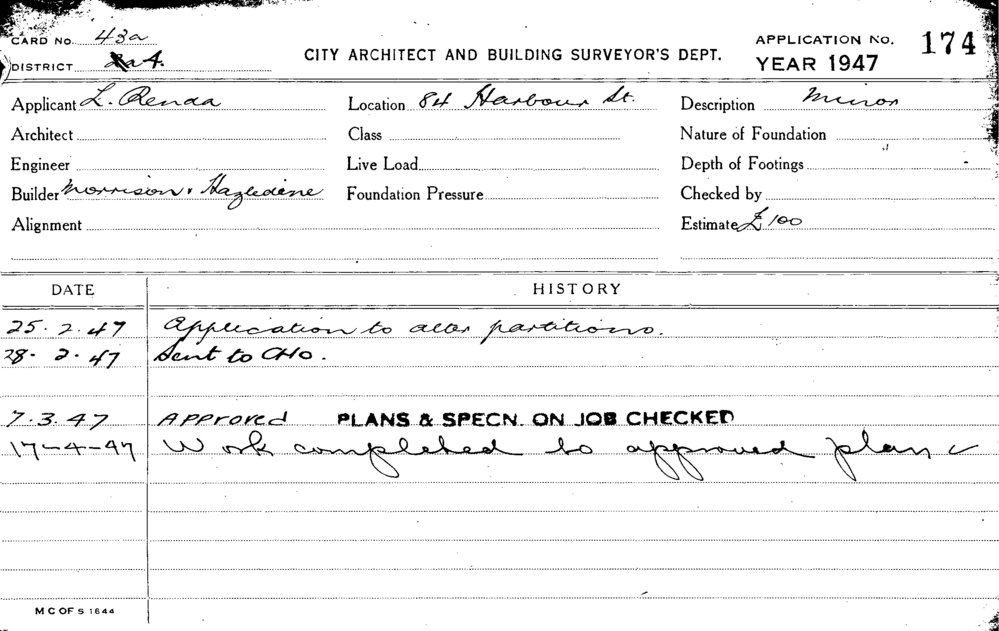 CARD No. 43a
CITY ARCHITECT AND BUILDING SURVEYOR'S DEPT.
APPLICATION No. 174
DISTRICT 4.
YEAR 1947
Applicant L. Renda Location 84 Harbour St. Description Minor
Architect Class Nature of Foundation
Engineer Live Load Depth of Footings
Builder Morrison & Hazledine Foundation Pressure Checked by
Alignment Estimate £100
DATE HISTORY
25.2.47 Application to alter partitions.
28.2.47 Sent to CHO.
7.3.47 Approved PLANS & SPECN. ON JOB CHECKED
17-4-47 Work completed to approved plan
M C OF S 1644